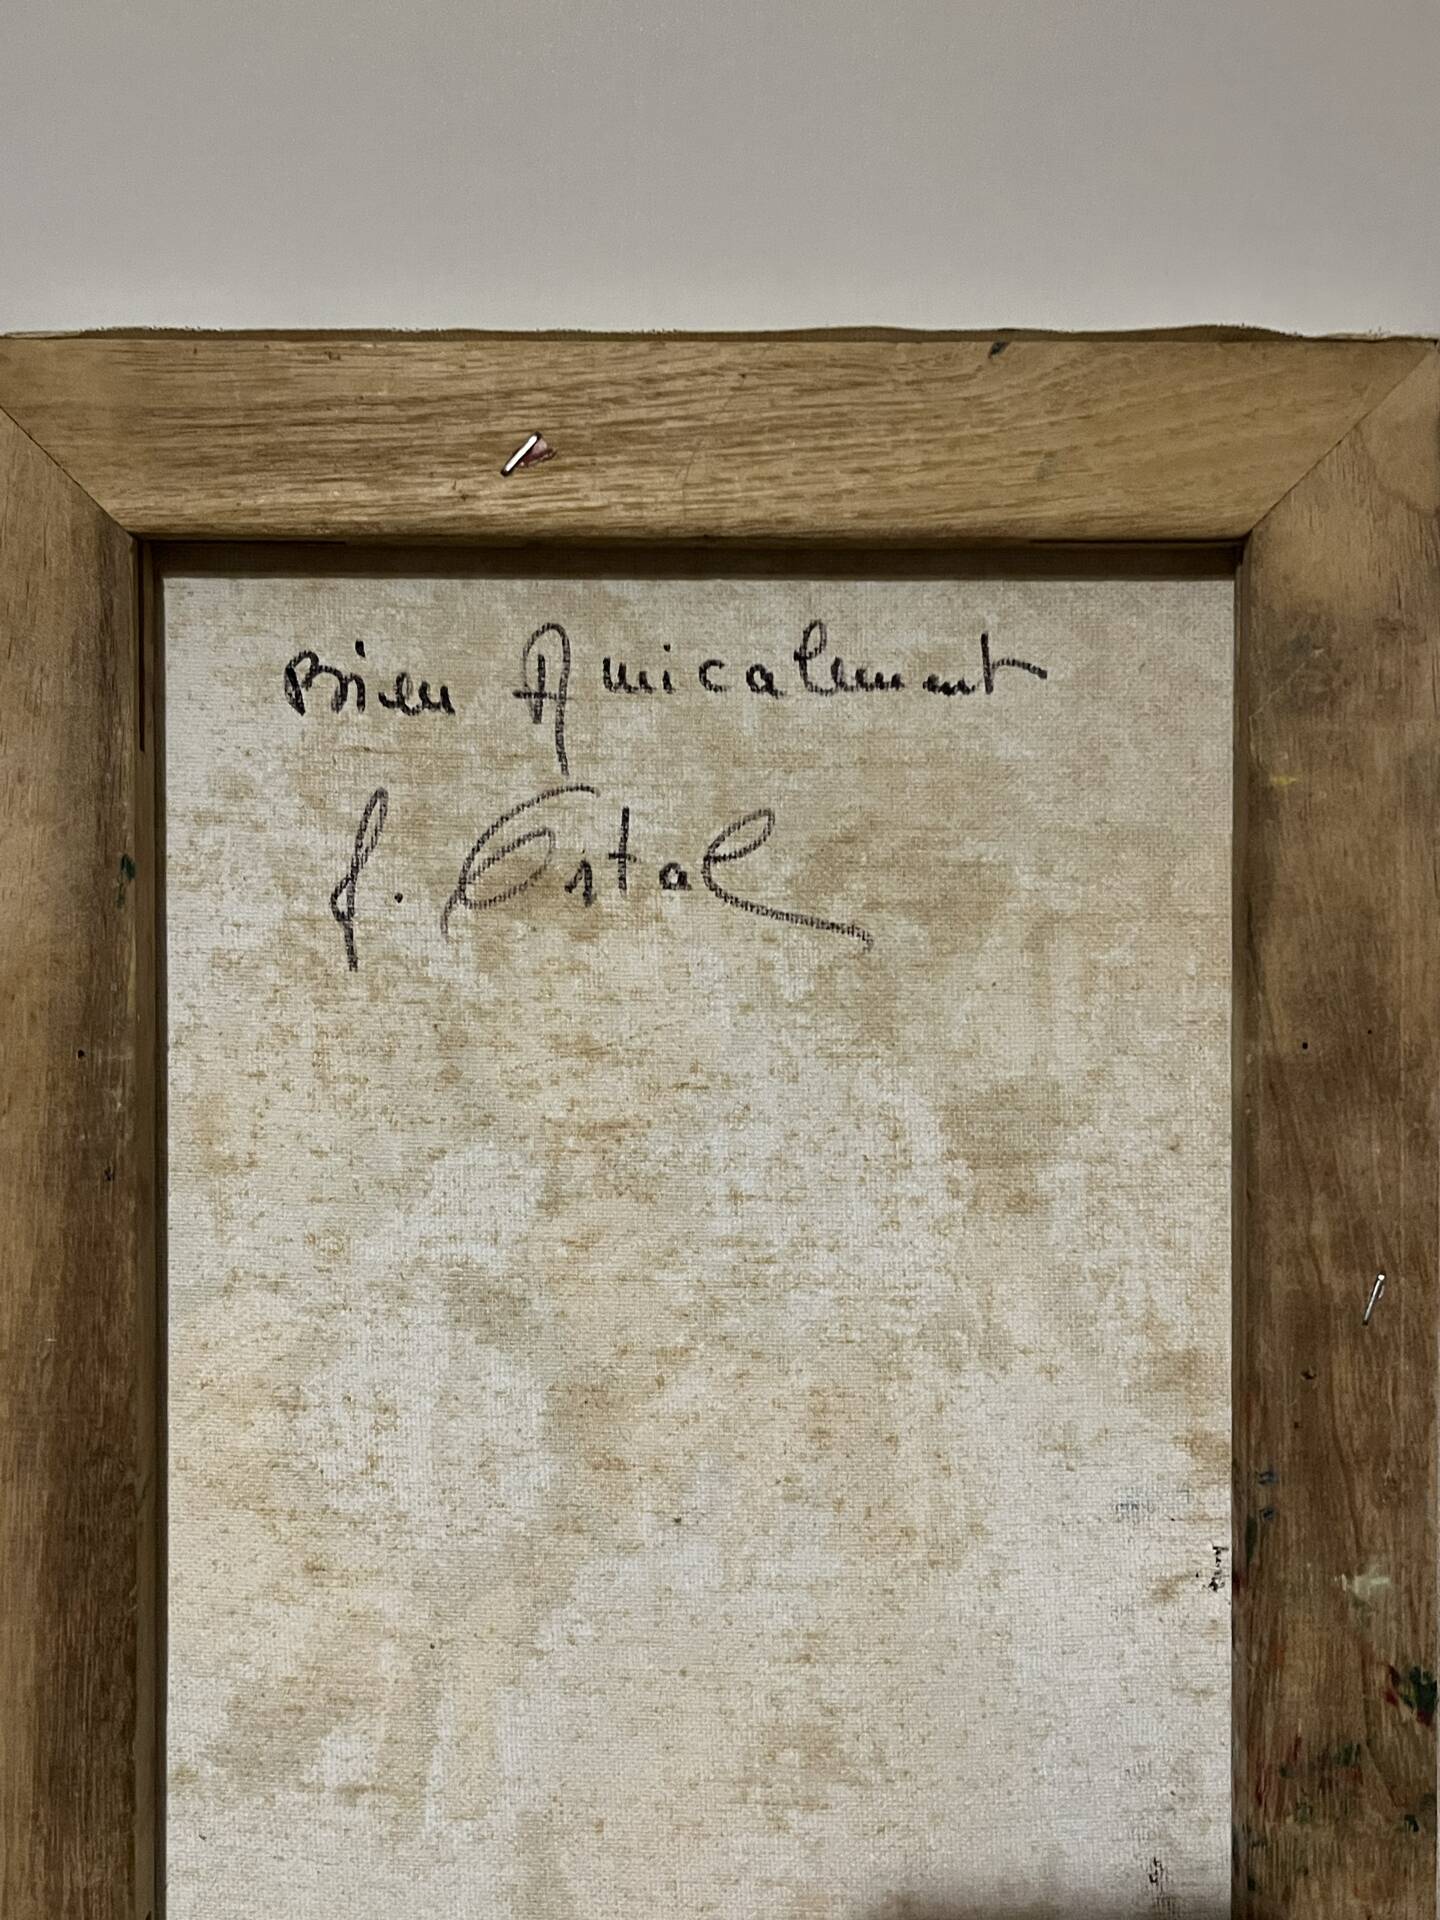 Bien Amicalement
J. Ostal